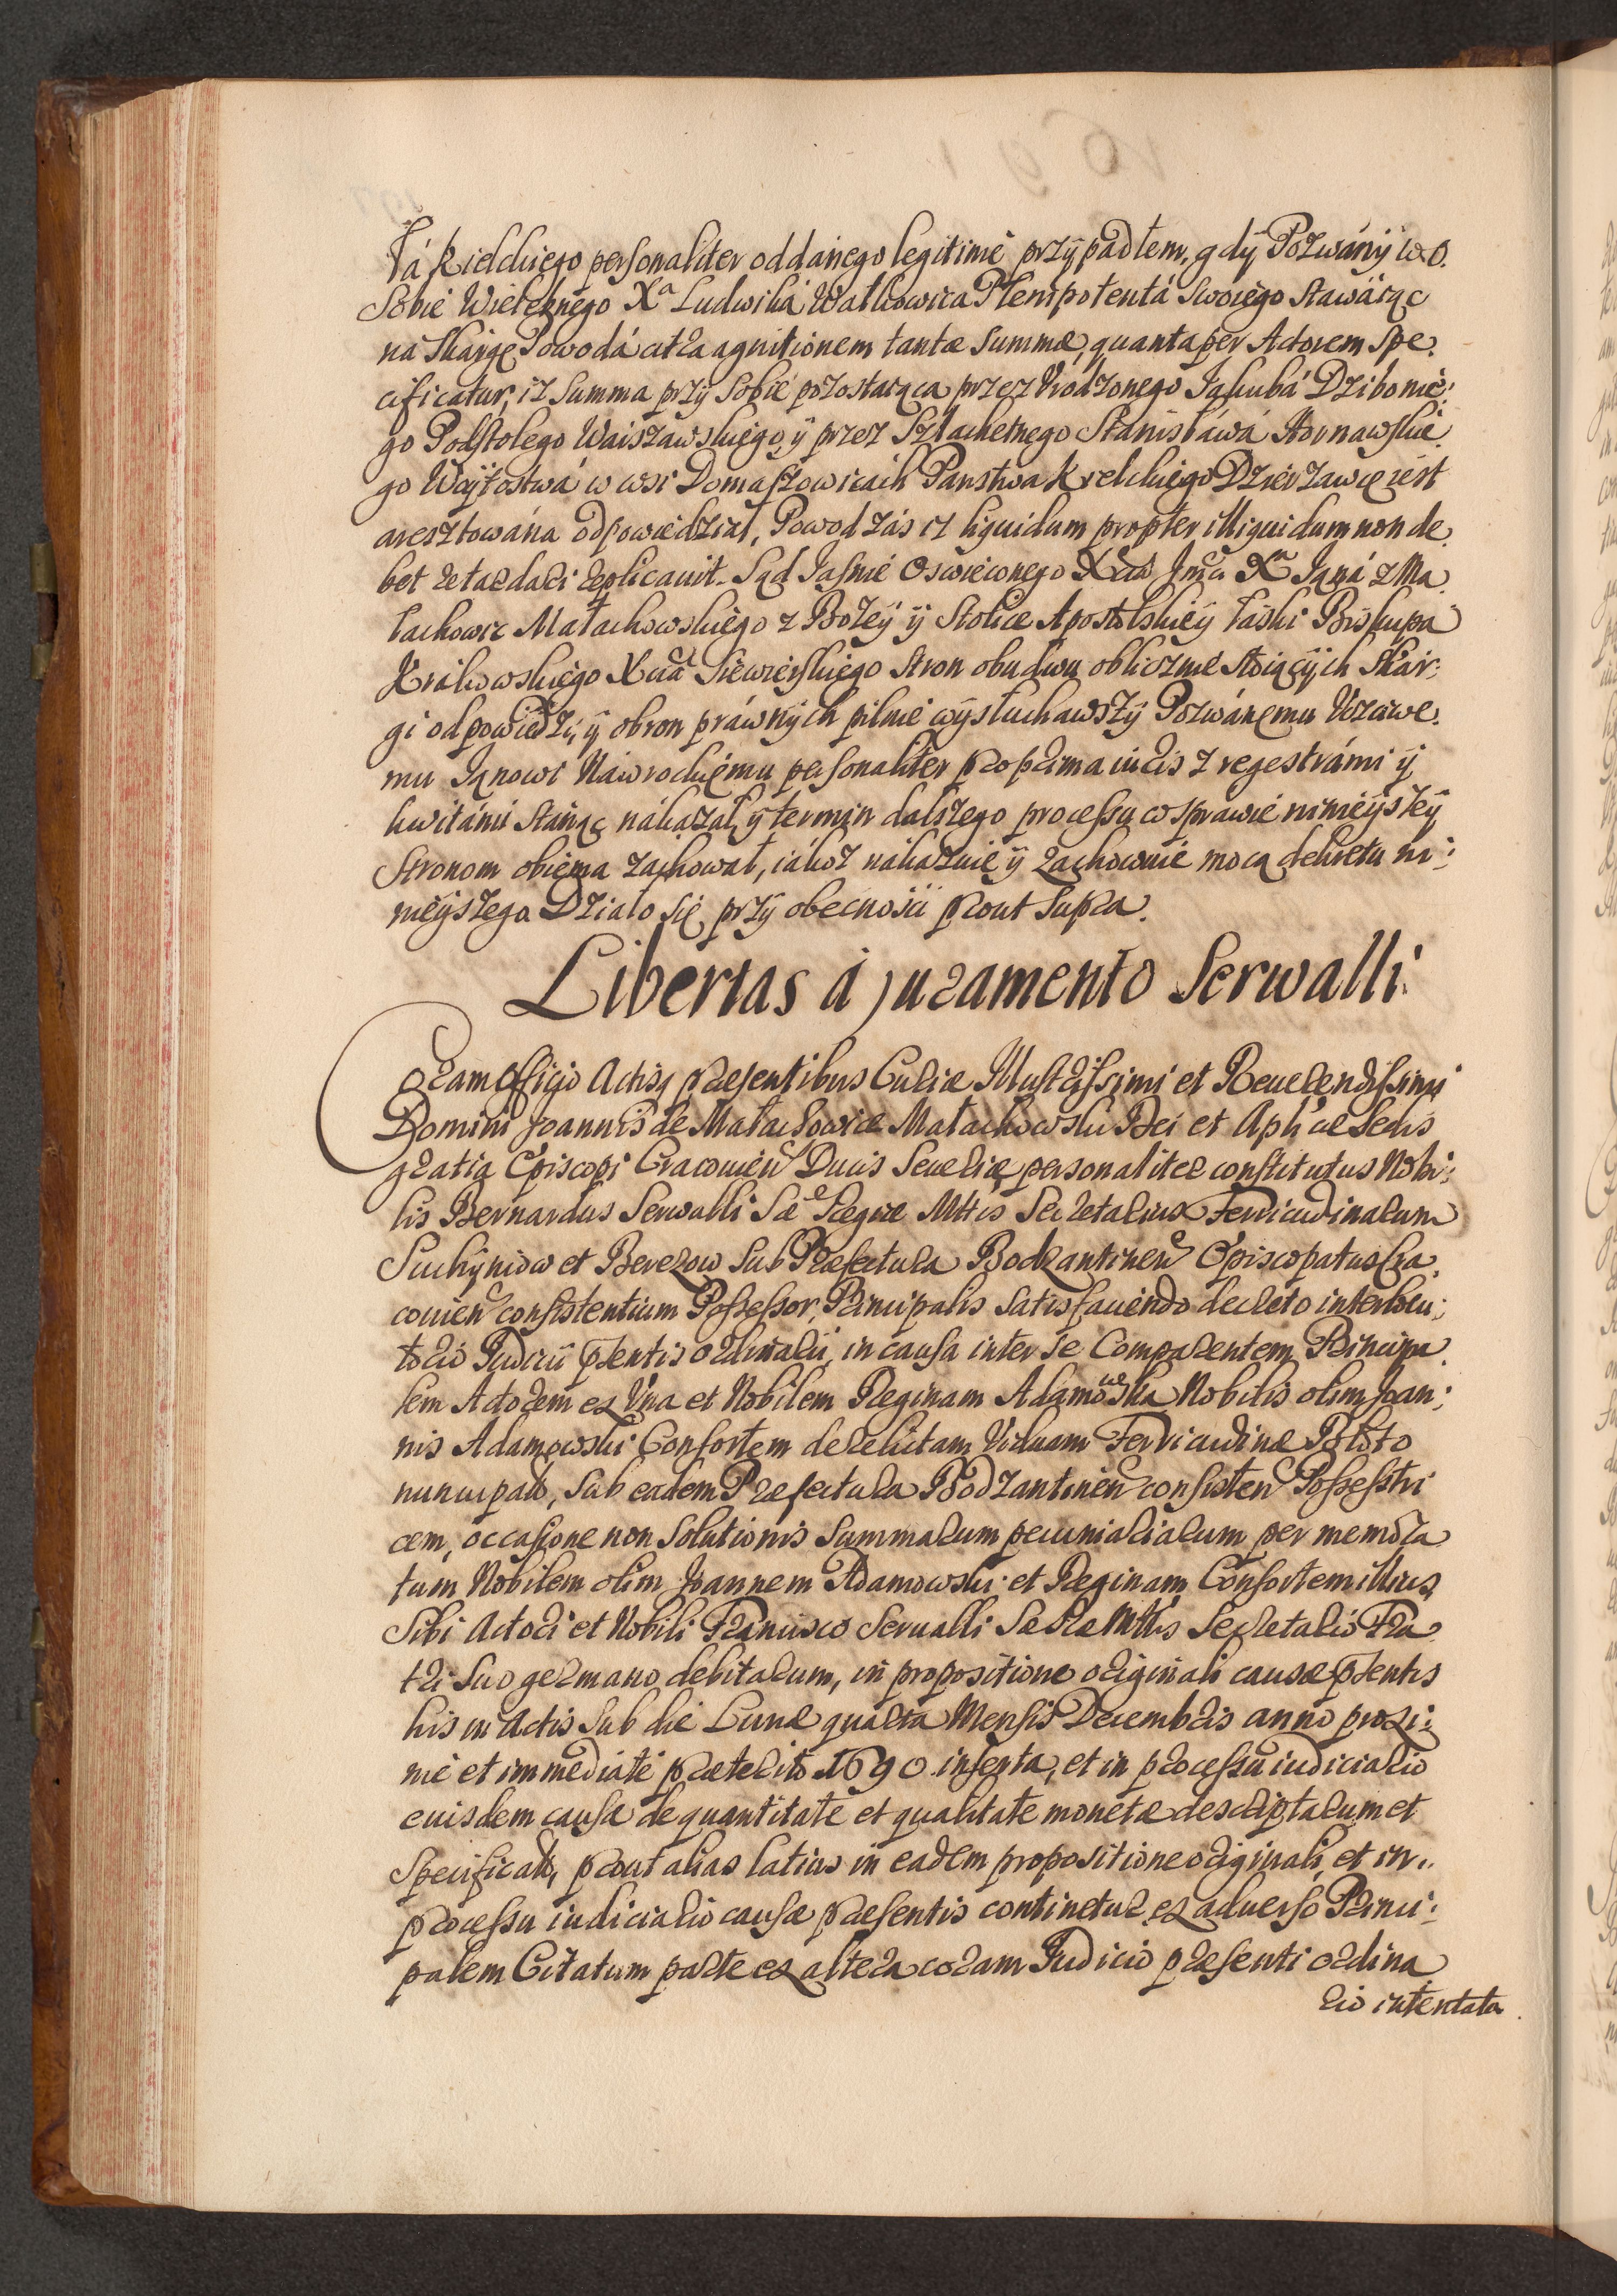 łá Kielckiego personaliter oddanego legitime przypadłem, gdy Pozwány w o.
sobie Wielebnego Xa Ludwiká Watkowica Plenipotentá swoiego stawáiąc
ná skargę Powodá citra agnitionem tantæ summæ, quanta per Actorem spe:
cificatur, iz summa przy sobie pozostaiąca przez Vrodzonego Iakubá Dzibonie:
go Podstolego Warszawskiego, y przez Szlachetnego Stanisłáwá Stornawskie:
go Woytostwá w wsi Domaszowicach Panstwa Kielckiego Dzierzawcę iest
aresztowána odpowiedział, Powod zás iz liquidum propter illiquidum non de:
bet retardari replicauit. Sąd Iasnie Oswieconego Xcia Jmci Xa Janá z Ma:
łachowic Małachowskiego z Bozey y Stolice Apostolskiey łaski Biskupa
Krakowskiego Xcia Siewierskiego stron obudwu oblicznie stoiących skar:
gi odpowiedzi, y obron práwnych pilnie wysłuchawszy Pozwánemu Vczciwe:
mu Janowi Nawrockiemu personaliter pro prima iuris z regestrámi y
kwitámi stánąc nákazał, y termin dalszego processu w sprawie ninieyszey
stronom obiema zachował, iákoz nákazuie y zachowuie mocą dekretu ni:
nieyszego. Działo się przy obecnosci prout supra.
Libertas á juramento Serwalli
Coram Officio Actisq præsentibus Curiæ Illustrissimi et Reuerendissimi
Domini Joannis de Małachowice Małachowski Dei et Aplicæ Sedis
gratia Episcopi Cracouien Ducis Seueriæ personaliter constitutus Nobi:
lis Bernardus Serwalli Sæ Regiæ Mttis Secretarius Ferricudinarum
Suchyniow et Berezow sub Præfectura Bodzantinen Episcopatus Cra:
couien consistentium Possessor, Principalis satisfaciendo decreto interlocu:
torio Judicii pntis ordinarii, in causa inter se Comparentem Principa:
lem Actorem ex Vna et Nobilem Reginam Adamowska Nobilis olim Joan:
nis Adamowski Consortem derelictam Viduam Ferricudinæ Poltoto
nuncupat, sub eadem Præfectura Bodzantinen consisten Possesstri
cem, occasione non solutionis summarum pecuniariarum per memora
tum Nobilem olim Joannem Adamowski et Reginam Consortem illius
Sibi Actori et Nobili Francisco Serualli Sæ Ræ Mttis Secretario Fra
tri suo germano debitarum, in propositione originali causæ pntis
his in Actis sub die Lunæ quarta Mensis Decembris anno proxi:
mé et immediaté præterito 1690 inserta, et in processu iudiciario
euisdem causæ de quantitate et qualitate monetæ descriptarum et
specificatt, prout alias latius in eadem propositione originali, et in
processu iudiciario causæ præsentis continetur, ex aduerso Princi:
palem Citatum parte ex altera coram Judicio præsenti ordina
rio intentata